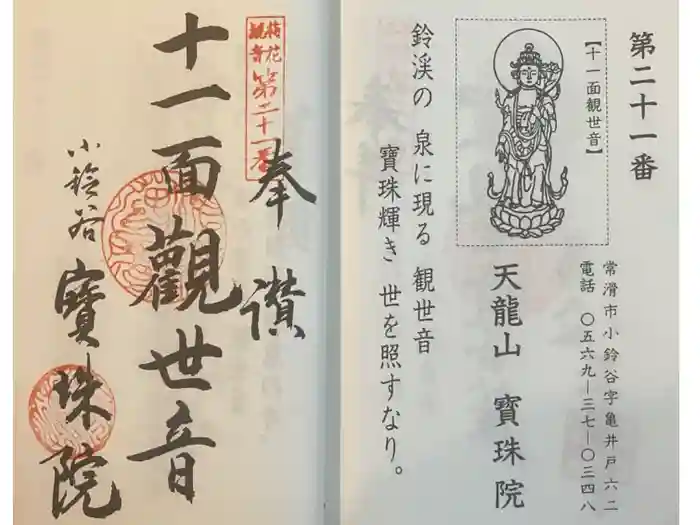 第二十一番
【十一面観世音】
常滑市小鈴谷字亀井戸六二
電話 〇五六九―三七―〇三四八
天龍山 寳珠院
鈴渓の 泉に現る 観世音
寳珠輝き 世を照すなり。
梅花
観音
第二十一番
奉讃
十一面觀世音
小鈴谷
寳珠院